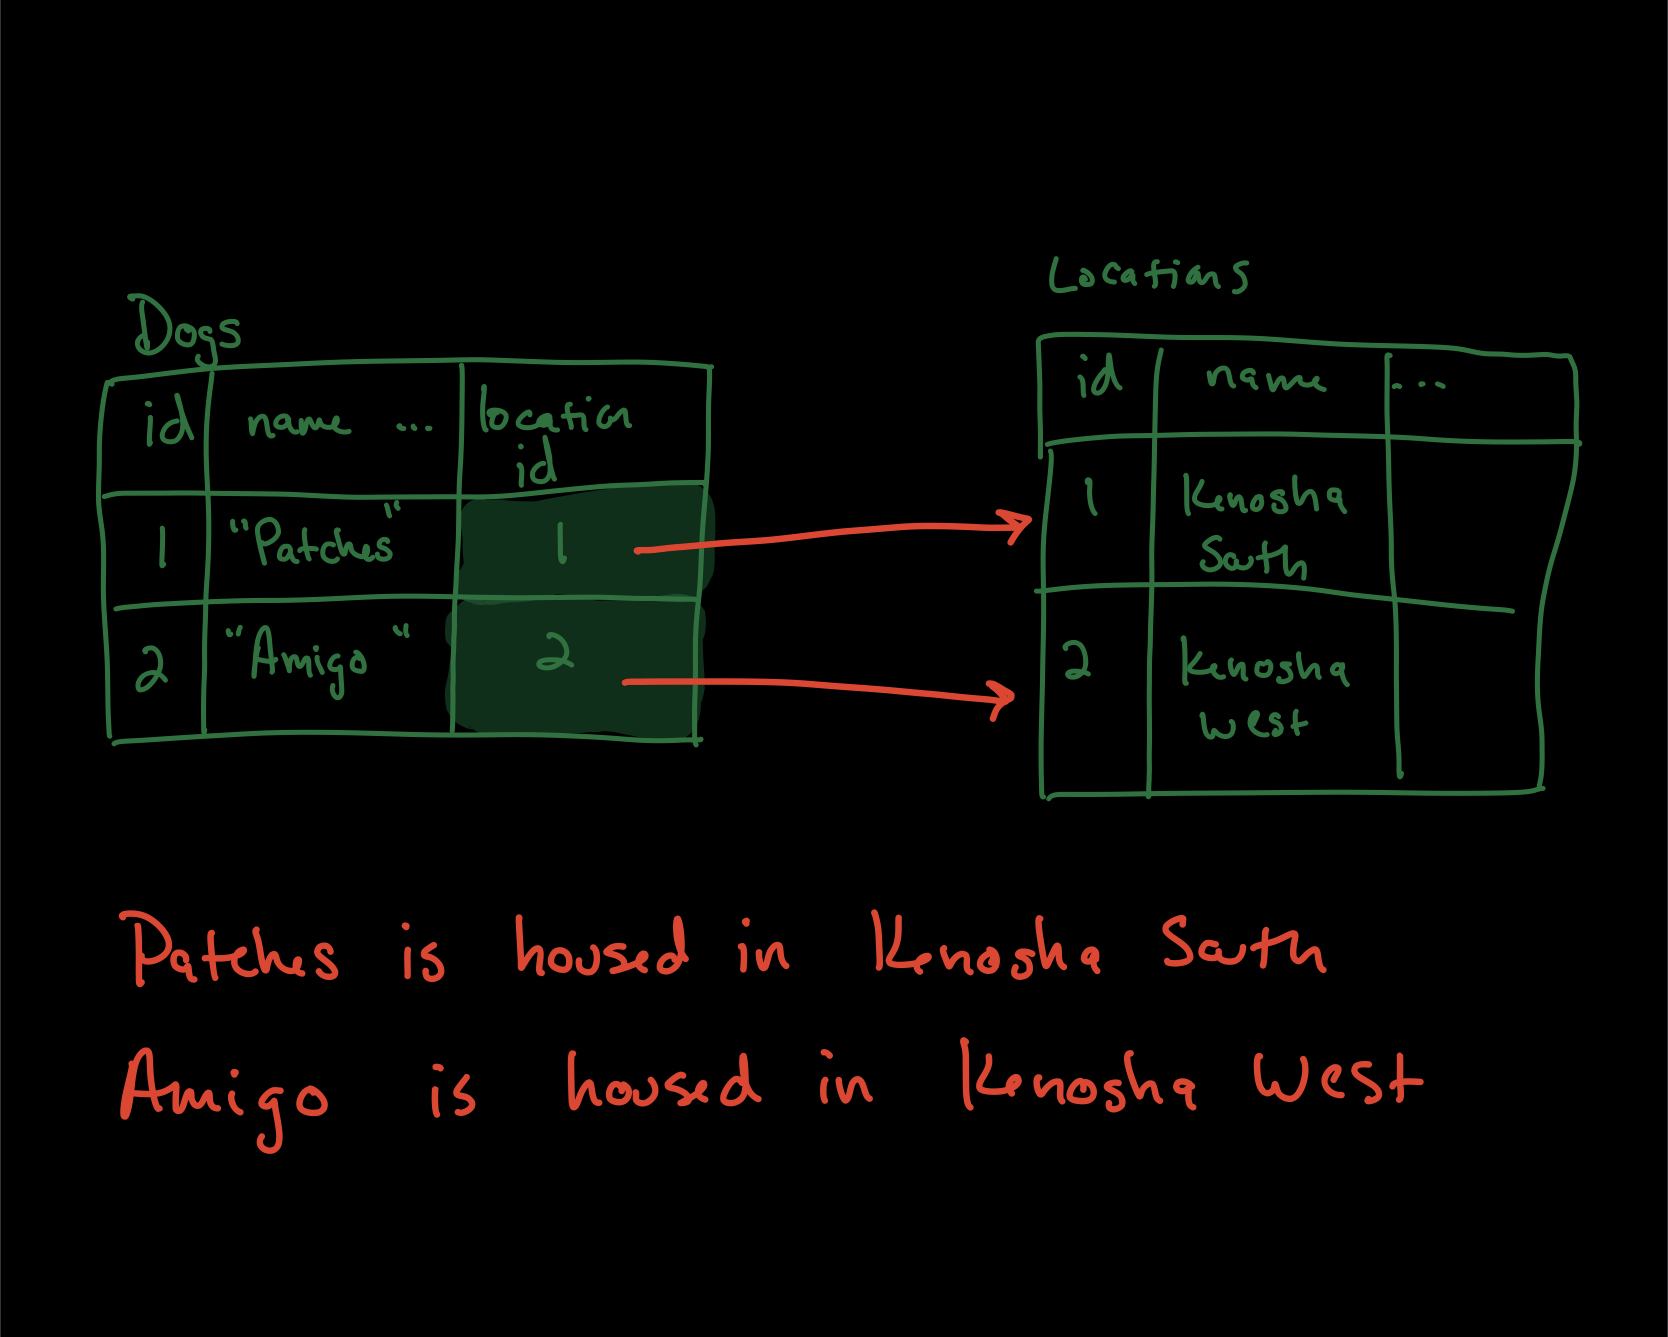 Dogs
id name ... location id
1 "Patches" 1
2 "Amigo" 2
Locations
id name ...
1 Kenosha
South
2 Kenosha
West
Patches is housed in Kenosha South
Amigo is housed in Kenosha West